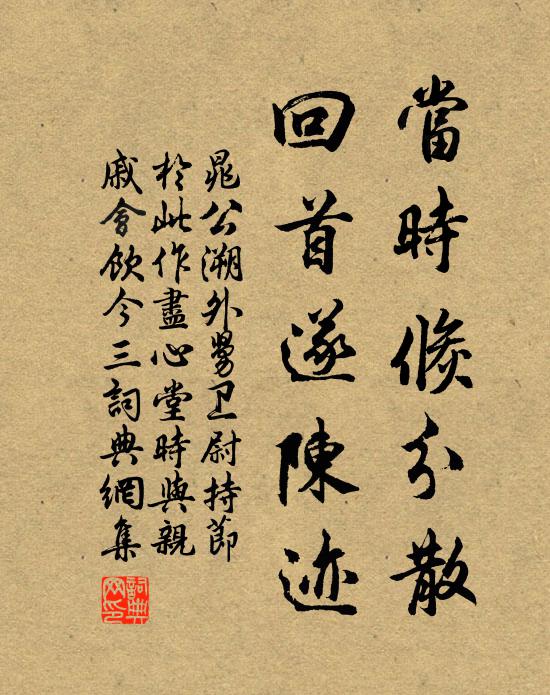 當時倏分散
回首遂陳迹
晁公溯外舅卫尉持節
於此作盡心堂時與親
戚會飲今三詞典網集
詞典
网印